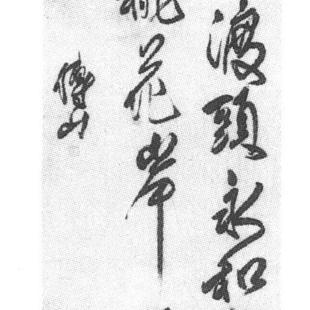 渡頭永和
桃花岸
傅山